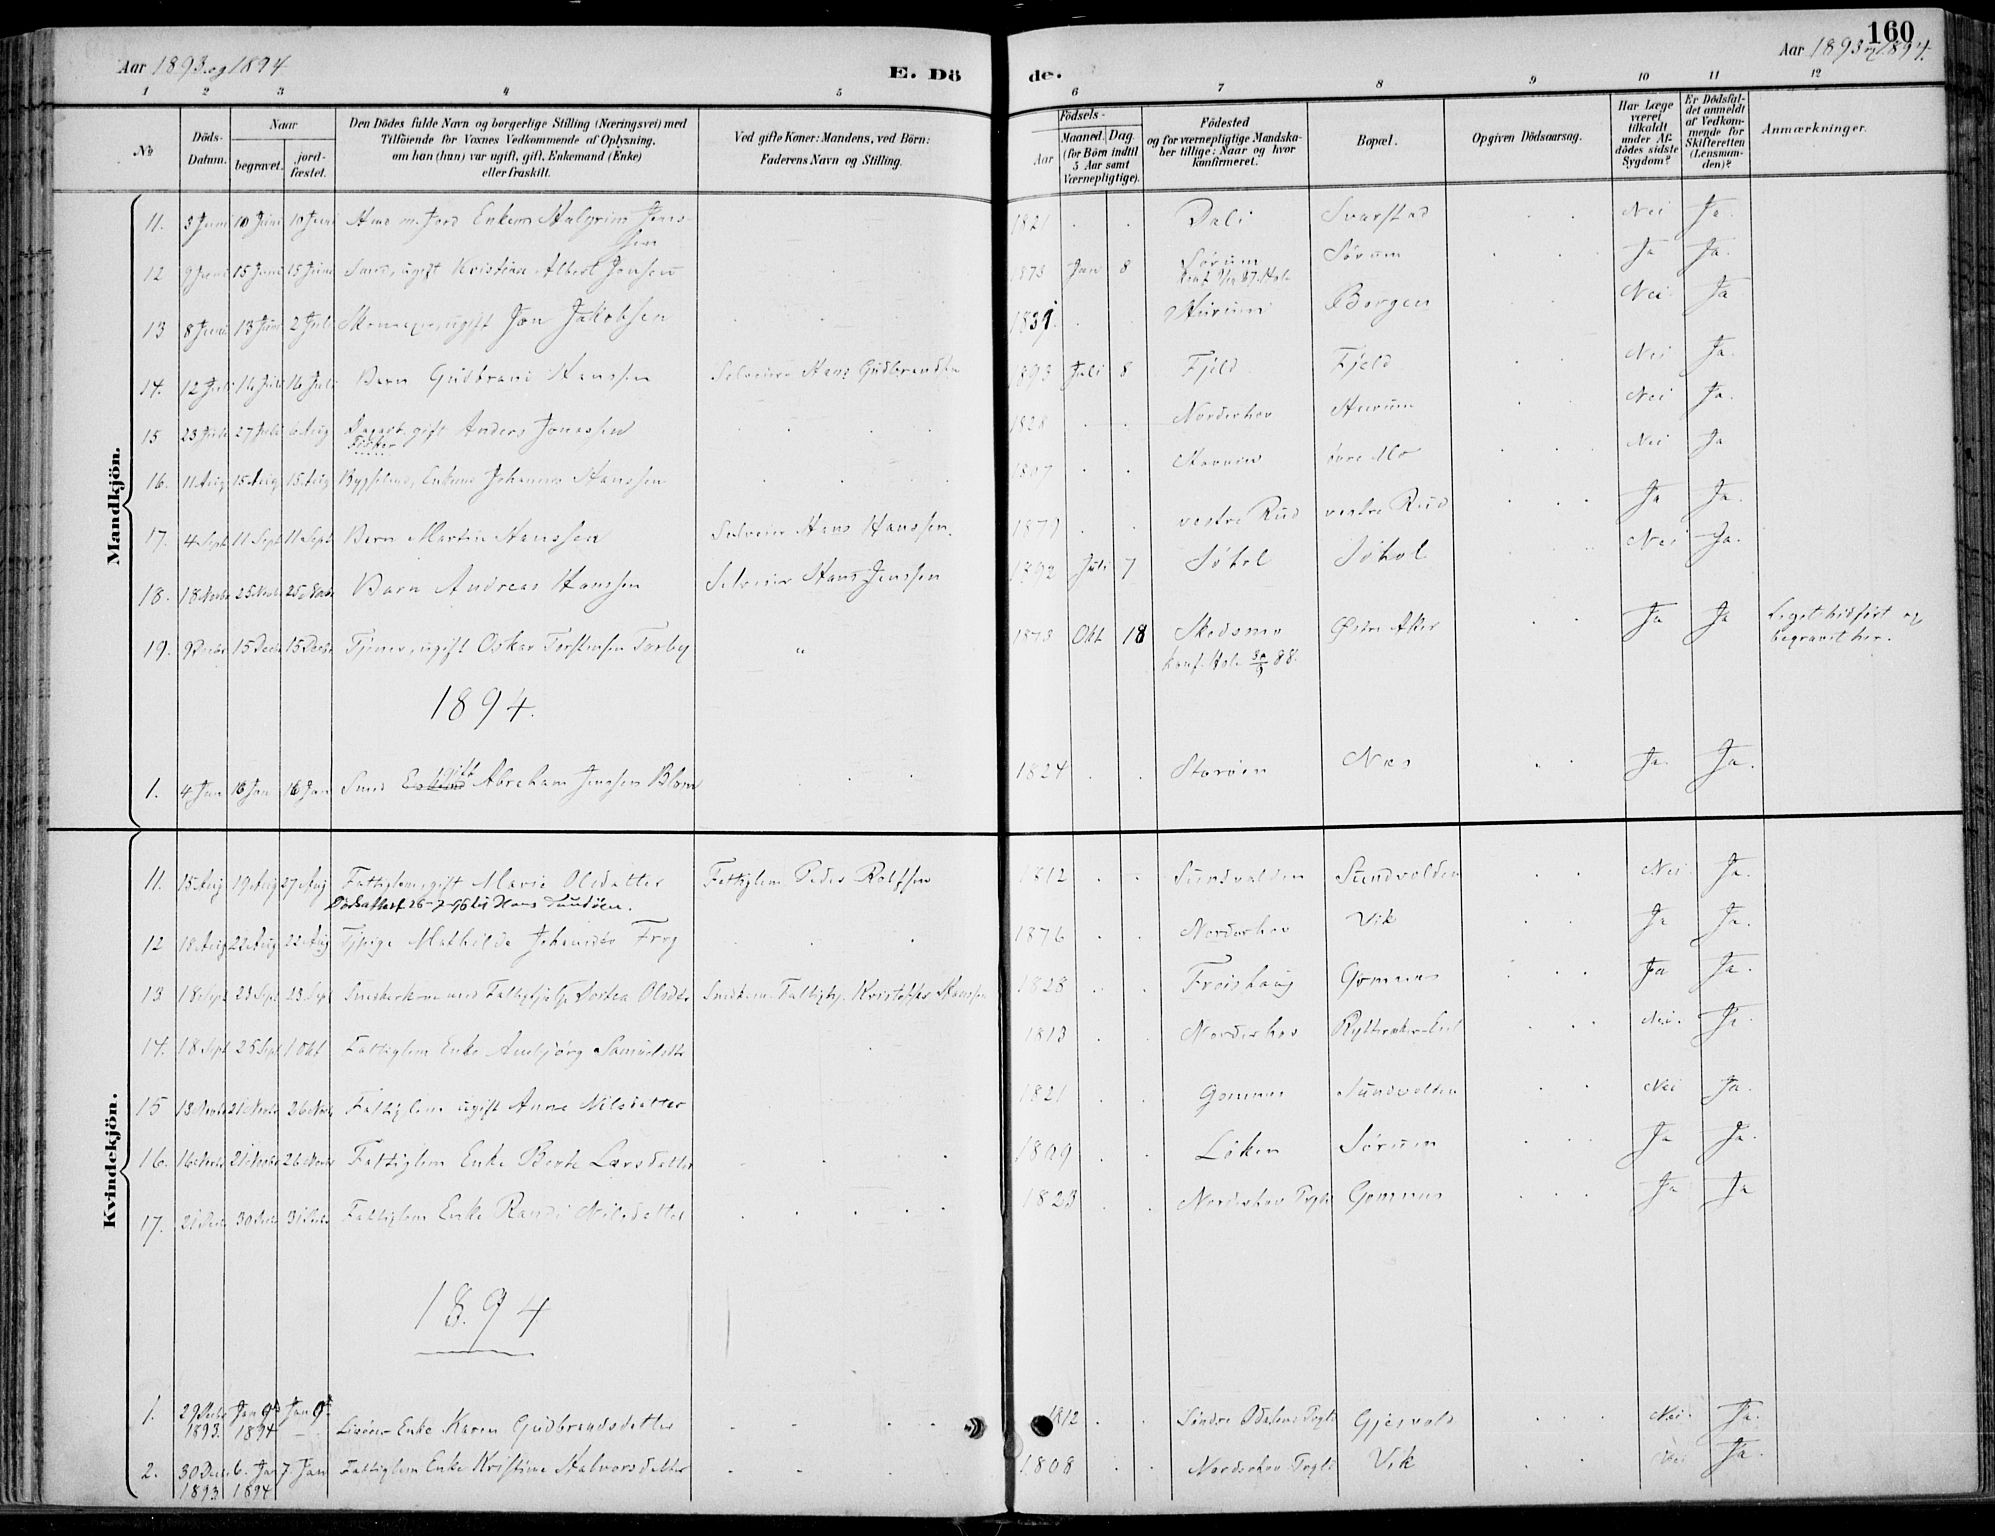 160
Aar 1893 og 1894
E. Dö
de.
Aar 1893 og 1894.
1 2 3 4 5 6 7 8 9 10 11 12
No
Döds-Datum.
Naar
begravet.
jord-fæstet.
Den Dödes fulde Navn og borgerlige Stilling (Næringsvei) med
Tilföiende for Voxnes Vedkommende af Oplysning,
om han (hun) var ugift, gift, Enkemand (Enke)
eller fraskilt.
Ved gifte Koner: Mandens, ved Börn:
Faderens Navn og Stilling.
Födsels-
Aar
Maaned. Dag.
(for Börn indtil
5 Aar samt
Værnepligtige).
Födested
og for værnepligtige Mandska-
ber tillige: Naar og hvor
konfirmeret.
Bopæl.
Opgiven Dödsaarsag.
Har Læge
været
tilkaldt
under Af-
dödes sidste
Sygdom?
Er Dödsfal-
det anmeldt
af Vedkom-
mende for
Skifteretten
(Lensman-
den)?
Anmærkninger.
Mandkjön.
11. 3 Juni 10 Juni 10 Juni Hmd m. Jord Enkem Halgrim Jens-
sen 1821 Dali Svarstad Nei Ja.
12 9 Juni 15 Juni 15 Juni Smed, ugift Kristian Albert Jonsen 1873 Jan 8 Sørum Sørum Ja Ja.
13 8 Juni 13 Juni 2 Juli ugift Jon Jakobsen 1831. Hurum Borgen Nei Ja
14. 12 Juli 16 Juli 16 Juli Barn Gudbrand Hanssen Selveier Hans Gudbrandsen 1893 Juli 8 Fjeld Fjeld Nei Ja.
15 23 Juli 27 Juli 6 Aug Dagarb. gift Anders Jonassen 1828 Norderhov Hurum Nei Ja.
Fisker
16. 11 Aug 15 Aug 15 Aug Bygselmd, Enkemd Johannes Hanssen 1807 øvre Mo Nei Ja
17. 4 Sept 11 Sept 11 Sept Barn Martin Hanssen Selveier Hans Hanssen. 1879 vestre Rud vestre Rud Ja Ja.
18. 18 Novbr 25 Novbr 25 Novbr Barn Andreas Hanssen Selveier Hans Jenssen 1892 Juli 7 Søhol Søhol Nei Ja.
19. 9 Decbr 15 Decbr 15 Decbr Tjener, ugift Oskar Torstensen Torby " 1873 Okt 18 Skedsmo Østre Aker Ja Ja Liget hidført og
konf. Hole 30/9 88. begravet her.
1894.
1. 4 Jan 16 Jan 16 Jan Smed gift Abraham Jenssen Blom 1824 Storøen Næs Ja. Ja.
Kvindekjön.
11. 15 Aug 19 Aug 27 Aug Fattiglem, gift Marie Olsdatter Fattiglem Peder Rolfsen 1812 Sundvolden Sundvolden Nei Ja.
Dødsattest 26-7-96 til Hans Sundøen.
12 18 Aug 22 Aug 22 Aug Tjpige Mathilde Johansdtr Frog 1876 Norderhov Vik Ja Ja.
13 18 Sept 23 Sept 23 Sept Fattighjelp Dorthea Olsdtr Kristoffer Hanssen 1828 Frøishaug Gomnæs Ja Ja.
14. 18 Sept 25 Sept 1 Okt Fattiglem Enke Ambjørg Samuelsdtr 1813 Norderhov Rytteraker-Eiet Nei. Ja.
15 13 Novbr 21 Novbr 26 Novbr Fattiglem ugift Anne Nilsdatter 1821 Gomnæs Sundvolden Nei Ja.
16. 16 Novbr 21 Novbr 26 Novbr Fattiglem Enke Berte Larsdatter 1809 Løken Sørum Ja Ja.
17. 21 Decbr 30 Decbr 31 Decbr Fattiglem Enke Randi Nilsdatter 1823 Norderhov Prgld Gomnæs Ja Ja
1894
1. 29 Decbr Jan 9d Jan 9d
1893. 1894 Enke Karen Gudbrandsdatter 1812 Søndre Odalens Prgld Gjesvold Nei. Ja.
2. 30 Dec. 6. Jan 7. Jan Fattiglem Enke Kristine Halvorsdatter 1808 Norderhov Prgld Vik Nei Ja.
1893 1894